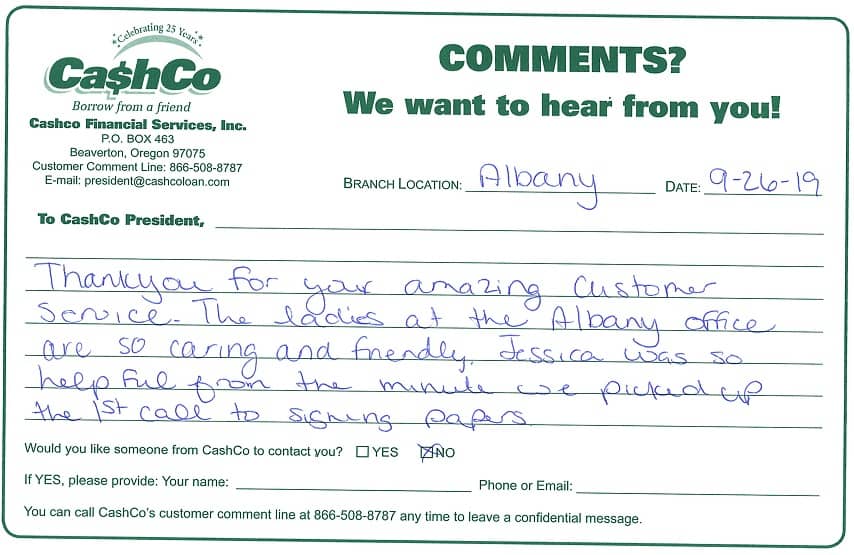 Celebrating 25 Years
Ca$hCo
Borrow from a friend
Cashco Financial Services, Inc.
P.O. BOX 463
Beaverton, Oregon 97075
Customer Comment Line: 866-508-8787
E-mail: president@cashcoloan.com
COMMENTS?
We want to hear from you!
BRANCH LOCATION: Albany DATE: 9-26-19
To CashCo President,
Thankyou for your amazing Customer
Service. The ladies at the Albany office
are so caring and friendly. Jessica was so
helpful from the minute we picked up
the 1st call to signing papers.
Would you like someone from CashCo to contact you? YES NO
If YES, please provide: Your name: Phone or Email:
You can call CashCo's customer comment line at 866-508-8787 any time to leave a confidential message.